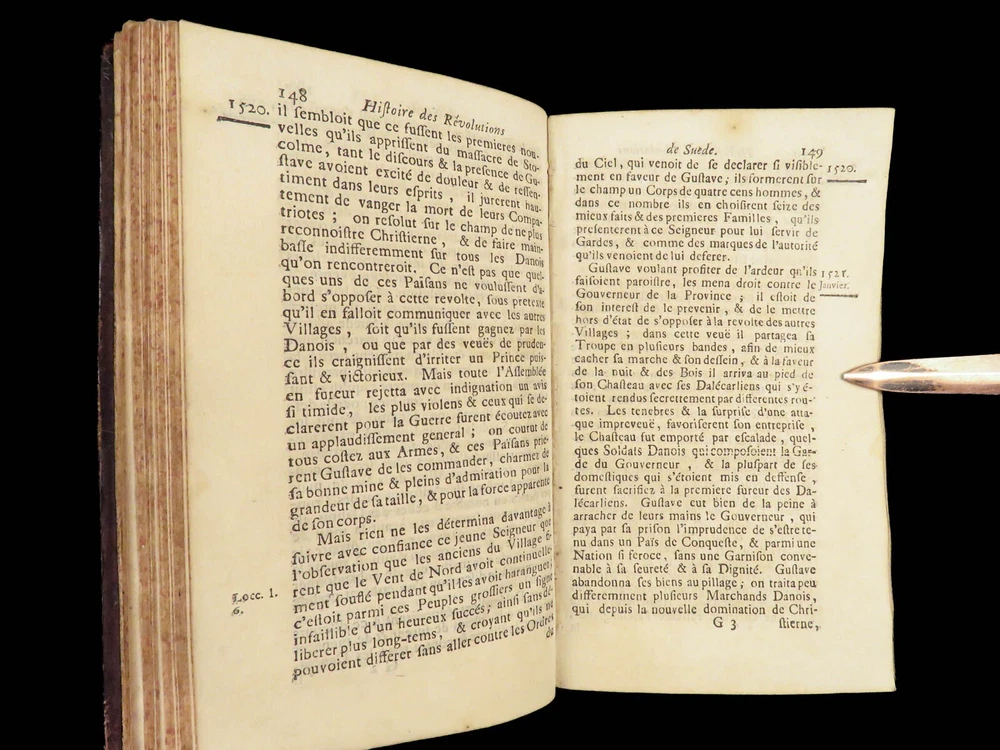 148
Hiſtoire des Révolutions
1520.
il ſembloit que ce fuſſent les premieres nou-
velles qu'ils appriſſent du maſſacre de Sto-
colme, tant le diſcours & la preſence de Gu-
ſtave avoient excité de douleur & de reſſen-
timent dans leurs eſprits, il jurerent hau-
tement de vanger la mort de leurs Compa-
triotes ; on reſolut ſur le champ de ne plus
reconnoiſtre Chriſtierne, & de faire main-
baſſe indifferemment ſur tous les Danois
qu'on rencontreroit. Ce n'eſt pas que quel-
ques uns de ces Païſans ne vouluſſent d'a-
bord s'oppoſer à cette revolte, ſous pretexte
qu'il en falloit communiquer avec les autres
Villages, ſoit qu'ils fuſſent gagnez par les
Danois, ou que par des veuës de pruden-
ce ils craigniſſent d'irriter un Prince puiſ-
ſant & victorieux. Mais toute l'Aſſemblée
en fureur rejetta avec indignation un avis
ſi timide, les plus violens & ceux qui ſe de-
clarerent pour la Guerre furent écoutez avec
un applaudiſſement general ; on courut de
tous coſtez aux Armes, & ces Païſans prie-
rent Guſtave de les commander, charmez de
ſa bonne mine & pleins d'admiration pour la
grandeur de ſa taille, & pour la force apparente
de ſon corps.
Mais rien ne les détermina davantage à
ſuivre avec confiance ce jeune Seigneur que
l'obſervation que les anciens du Village fi-
rent que le Vent de Nord avoit continuelle-
Locc. l.
6.
ment ſouflé pendant qu'il les avoit haranguez;
c'eſtoit parmi ces Peuples groſſiers un ſigne
infaillible d'un heureux ſuccés; ainſi ſans dé-
liberer plus long-tems, & croyant qu'ils ne
pouvoient differer ſans aller contre les Ordres
du
de Suède.
149
du Ciel, qui venoit de ſe declarer ſi viſible-
1520.
ment en faveur de Guſtave; ils formerent ſur
le champ un Corps de quatre cens hommes, &
dans ce nombre ils en choiſirent ſeize des
mieux faits & des premieres Familles, qu'ils
preſenterent à ce Seigneur pour lui ſervir de
Gardes, & comme des marques de l'autorité
qu'ils venoient de lui deferer.
Guſtave voulant profiter de l'ardeur qu'ils
1521.
faiſoient paroiſtre, les mena droit contre le
Janvier.
Gouverneur de la Province ; il eſtoit de
ſon intereſt de le prevenir, & de le mettre
hors d'état de s'oppoſer à la revolte des autres
Villages ; dans cette veuë il partagea ſa
Troupe en pluſieurs bandes, afin de mieux
cacher ſa marche & ſon deſſein, & à la faveur
de la nuit & des Bois il arriva au pied de
ſon Chaſteau avec ſes Dalécarliens qui s'y é-
toient rendus ſecrettement par differentes rou-
tes. Les tenebres & la ſurpriſe d'une atta-
que impreveuë, favoriſerent ſon entrepriſe,
le Chaſteau fut emporté par eſcalade, quel-
ques Soldats Danois qui compoſoient la Gar-
de du Gouverneur, & la pluſpart de ſes
domeſtiques qui s'étoient mis en deffenſe,
furent ſacrifiez à la premiere fureur des Da-
lécarliens. Guſtave eut bien de la peine à
arracher de leurs mains le Gouverneur, qui
paya par ſa priſon l'imprudence de s'eſtre te-
nu dans un Païs de Conqueſte, & parmi une
Nation ſi feroce, ſans une Garniſon conve-
nable à ſa ſeureté & à ſa Dignité. Guſtave
abandonna ſes biens au pillage ; on traita peu
differemment pluſieurs Marchands Danois,
qui depuis la nouvelle domination de Chri-
G 3
ſtierne,